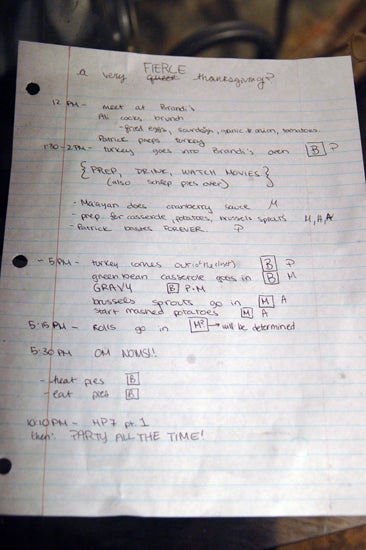 FIERCE
a very queer thanksgiving?
12 PM - meet at Brandi's
Ali cooks brunch
- fried eggs, sourdough, garlic + onion, tomatoes.
Patrick preps turkey
1:30-2PM - turkey goes into Brandi's oven B P
{PREP, DRINK, WATCH MOVIES}
(also schlep pies over)
- Marayan does cranberry sauce M
- prep for casserole, potatoes, brussels sprouts M, A
- Patrick bastes FOREVER. P
~ 5PM - turkey comes out (of the closet) B P
green bean casserole goes in B M
GRAVY B P+M
brussels sprouts go in M A
start mashed potatoes M A
5:15 PM - Rolls go in M? → will be determined
5:30 PM OM NOMS!!
- heat pies B
- eat pies B
10:10 PM - HP7 pt. 1
then: PARTY ALL THE TIME!